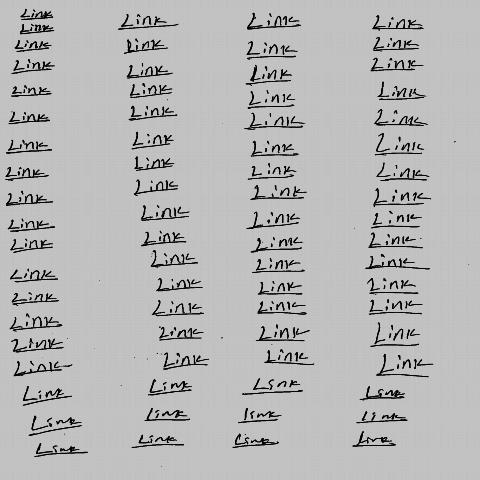 Link Link Link Link
Link
Link Link Link Link
Link Link Link Link
Link Link Link Link
Link Link Link Link
Link Link Link Link
Link Link Link Link
Link Link Link Link
Link Link Link Link
Link Link Link Link
Link Link Link Link
Link Link Link Link
Link Link Link Link
Link Link Link Link
Link Link Link Link
Link Link Link Link
Link link link Link
Link Link Link Link